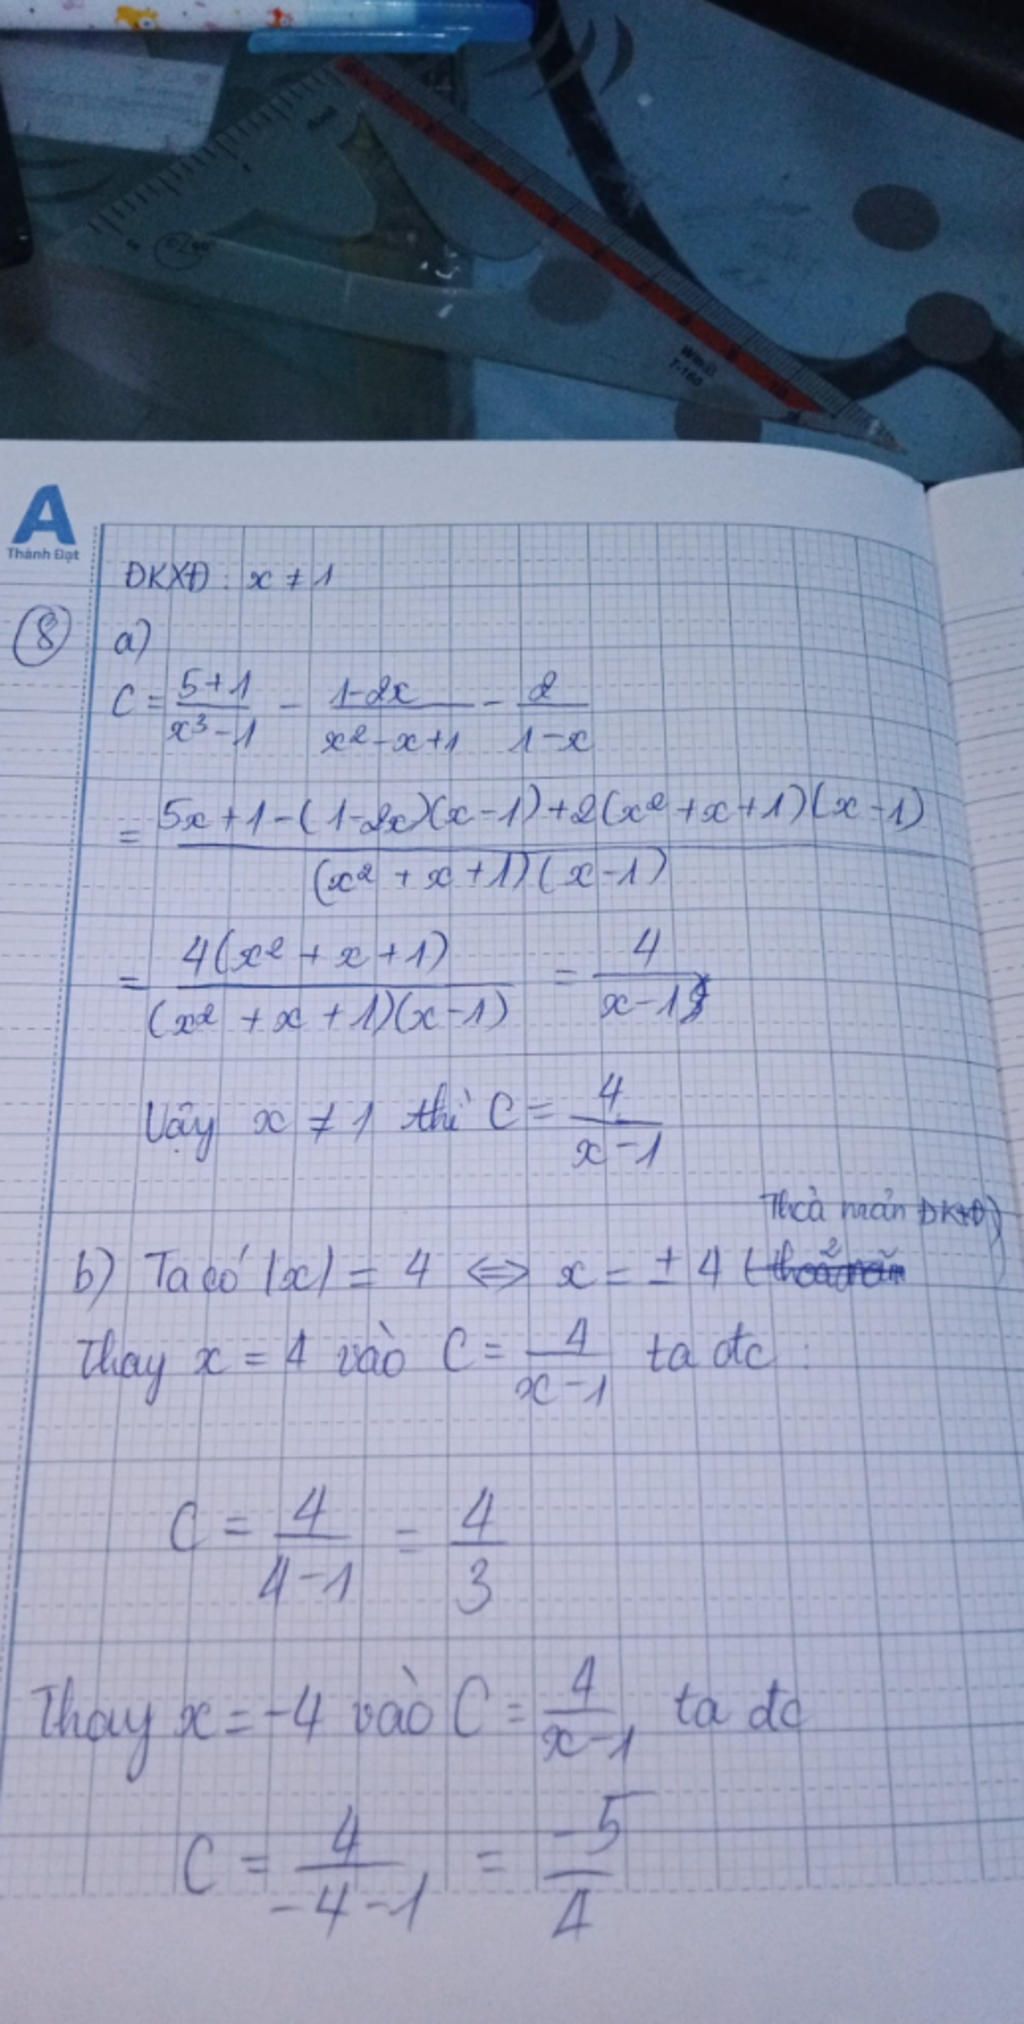 WinQ
T-160
A
Thành Đạt
ĐKXĐ : x ≠ 1
8 a)
C = (5+1)/(x³-1) - (1-2x)/(x²-x+1) - 2/(1-x)
= (5x+1-(1-2x)(x-1)+2(x²+x+1)(x-1))/((x²+x+1)(x-1))
= (4(x²+x+1))/((x²+x+1)(x-1)) = 4/(x-1)
Vậy x ≠ 1 thì C = 4/(x-1)
Thỏa mản ĐKXĐ)
b) Ta có |x| = 4 ⇔ x = ± 4 (
Thay x = 4 vào C = 4/(x-1) ta đc
C = 4/(4-1) = 4/3
Thay x = -4 vào C = 4/(x-1) ta đc
C = 4/(-4-1) = -5/4